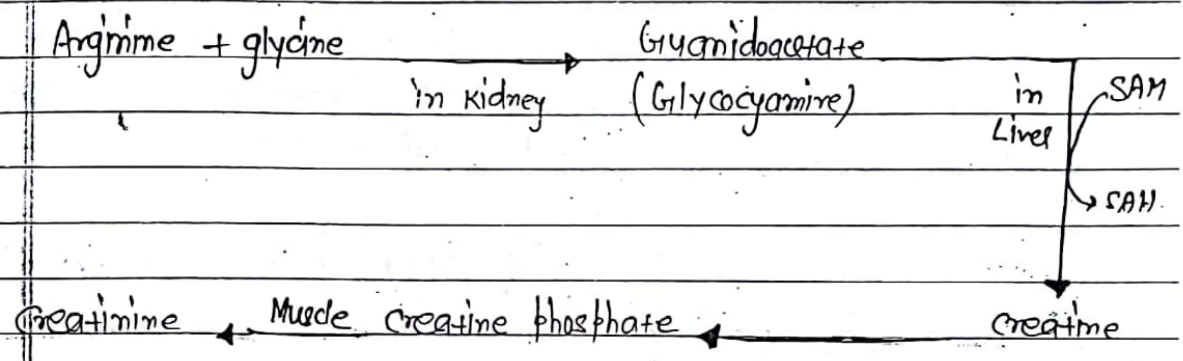 Arginine + glycine Guanidoacetate
in kidney (Glycocyamine) in SAM
Liver
SAH.
Creatinine Muscle creatine phosphate creatine